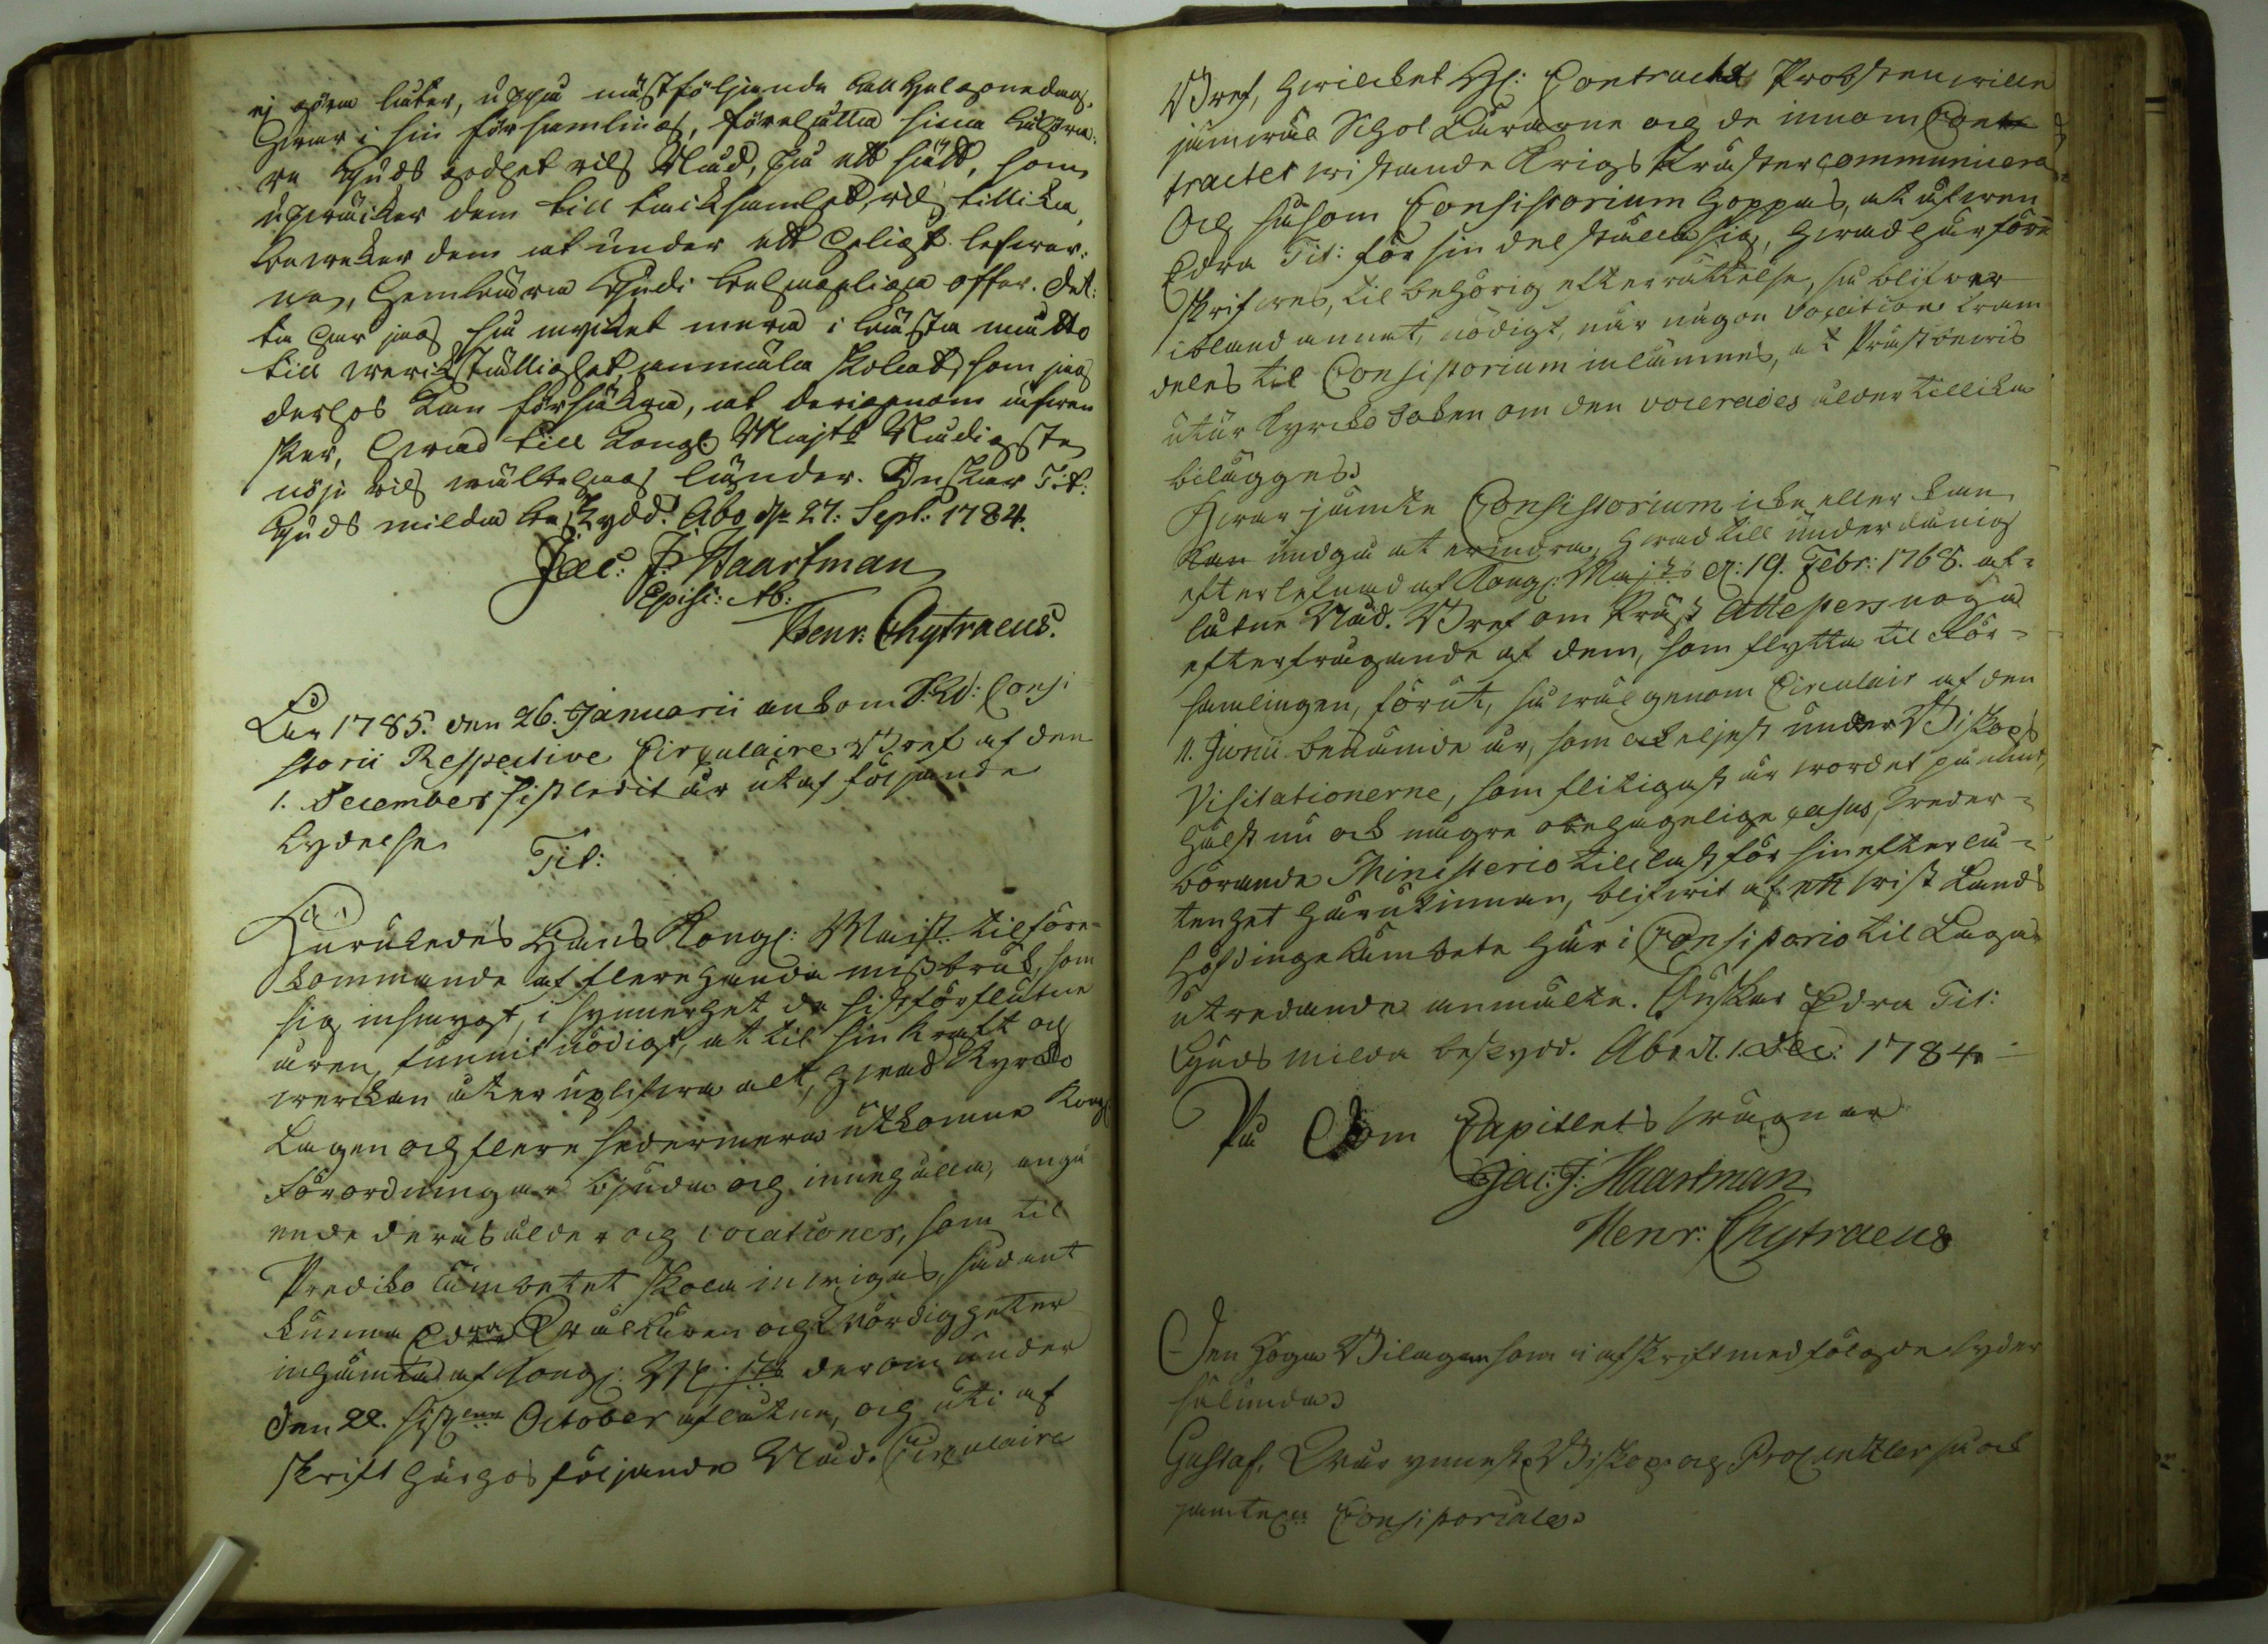 ej göra låter, uppå nästföljande
hwar i sin församling, föreställa sina åhöra-
re Guds godhet och Nåd, på ett sätt, som
upwäcker dem till tacksamhet, och tillika
beweker dem at under ett heligt lefwer-
ne, hembära Gudi behageliga offer. Det-
ta har jag så mycket mera i bästa måtto
till werckställighet anmäla skolat, som jag
derhos kan försäkra, at derigenom äfwen
sker, hwad till Kongl. Majts Nådigste
nöje och wälbehag länder. Önskar Tit:
Guds milda beskydd. Åbo d. 27. Sept: 1784.
Jac: J. Haartman
Episc: Ab:
Henr: Chytraeus.
Åhr 1785. den 26. Januarii ankom V: Consi
storii Respective Circulaire Bref af den
1. December sistledit år utaf följande
lydelse
Tit:
Huruledes Hans Kongl: Maijst: tilföre-
kommande af flerehanda missbruk, som
sig insmygt, i synnerhet de sistförflutne
åren, funnit nödigt, at til sin kraft och
werckan återuplifwa alt, hwad Kyrcko
Lagen och flere sedermera utkomne Kongl.
Förordningar bjuda och innehålla, angå
ende deras ålder och vocationer, som til
Predikoämbetet skola inwigas, sådant
kunna Edra och wördigheter
inhämta af Kongl: M:jts derom under
den 22. sistl. October aflåtne, och uti af
skrift härhos följande Nåd. Circulaire
Bref, hwilcket H: Contracts Probsten wille
jämwäl Schol Lärarne och de inom Con
tractet wistande Krigs Präster communicera
Och såsom Consistorium hoppas, at äfwen
Edra Tit: för sin del ställa sig, hwad här före
skrifwes, til behörig efterrättelse, så blifwer
ibland annat, nödigt, när någon vocation fram
deles til Consistorium inlämnes, at Prästbewis
utur Kyrkoboken om den vocerades ålder tillika
bilägges
Hwarjämte Consistorium icke eller kan
kan undgå at erindra, hwad till underdånig
efterlefnad af Kongl: Majts d: 19. Febr: 1768. af-
låtne Nåd. Bref om Präst Attesters noga
efterfrågande af dem, som flytta til För-
samlingen, förut, så wäl genom Circulair af den
11. Junii benämde år, som ock eljest under Biskops
Visitationerne, som flitigast är wordet påmint,
hälst nu ock någre obehagelige casus, weder-
börande Ministerio till last för sin efterlå-
tenhet härutinnan, blifwit af ett wist Lands
höfdingeämbete här i Consistorio til Laga
utredande anmälte. Önskar Edra Tit:
Guds milda beskydd. Åbo d. 1. Dec: 1784.
På Dom Capitlets wägnar
Jac: J: Haartman
Henr: Chytraeus
Den höga Bilagan som i afskrift medfölgde lyder
sålunda
Gustaf. Wår ynnest Biskop och Procantzler så ock
samtel. Consistoriales